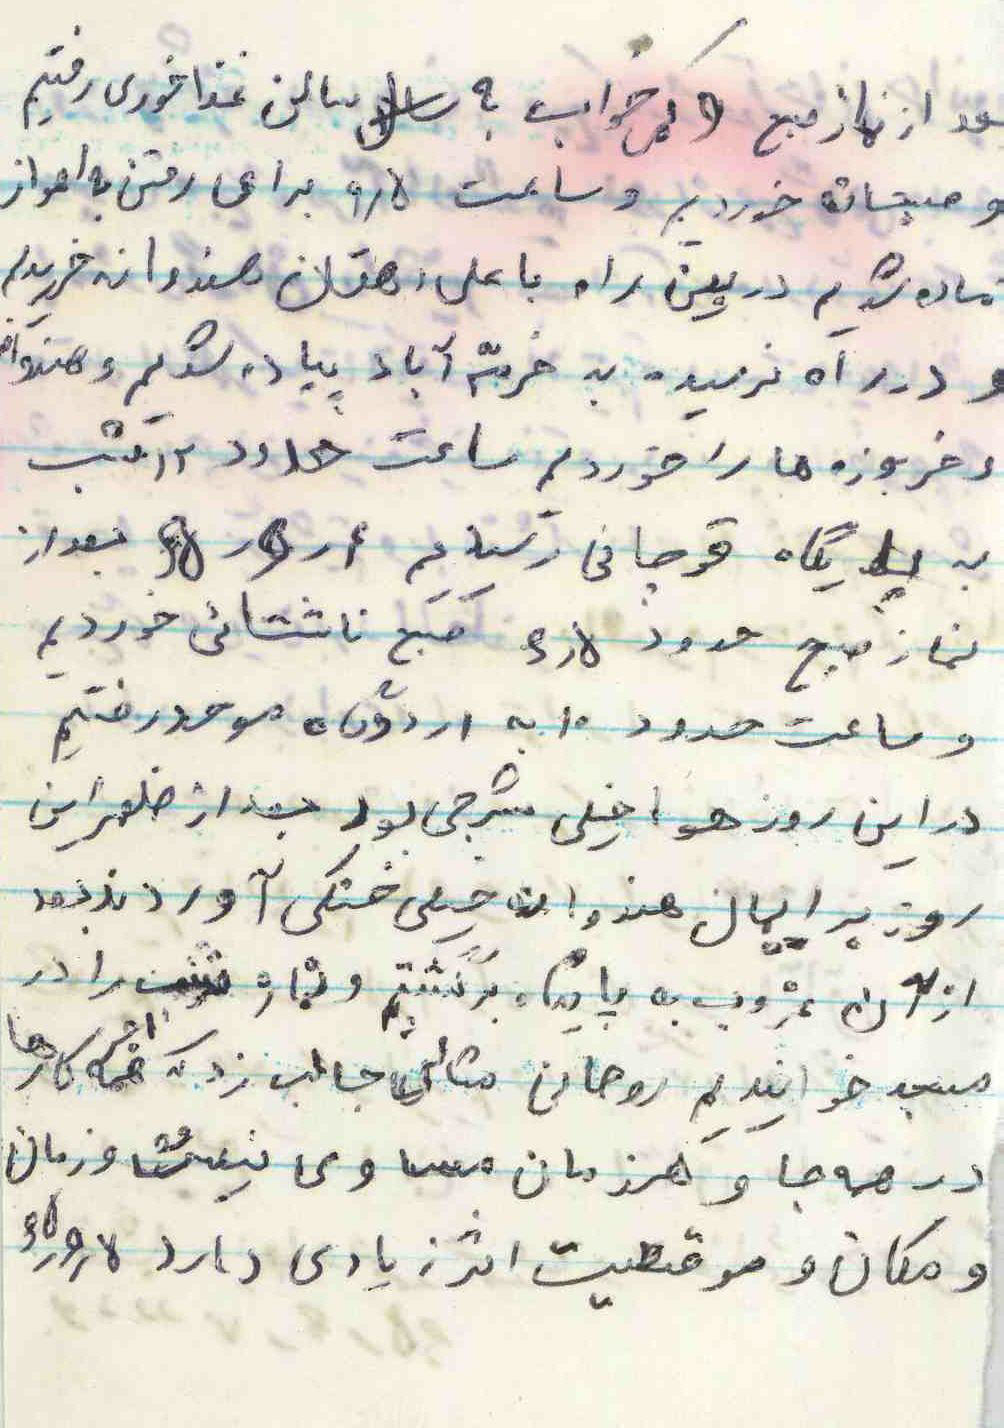 بعد از نماز صبح و کمی خواب به سالن غذاخوری رفتیم
و صبحانه خوردیم و ساعت ۹٫۵ برای رفتن به اهواز
آماده شدیم در بین راه با علی دهقان هندوانه خریدیم
و در راه نرسیده به خرم آباد پیاده شدیم و هندوانه
و خربوزه ها را خوردیم ساعت حدود ۱۲ شب
به پایگاه قوچانی رسیدیم بعد از
نماز صبح حدود ۶٫۵ صبح ناشتائی خوردیم
و ساعت حدود ۱۰ به اردوگاه موحد رفتیم
در این روز هوا خیلی شرجی بود بعد از ظهر این
روز بر ایمان هندوانه خیلی خنکی آوردند بعد
از آن غروب به پایگاه برگشتیم و نماز شب را در
مسجد خواندیم روحانی مثالی جالب زد که اجر کارها
در همه جا و هر زمان مساوی نیست و زمان
و مکان و موقعیت اثر زیادی دارد